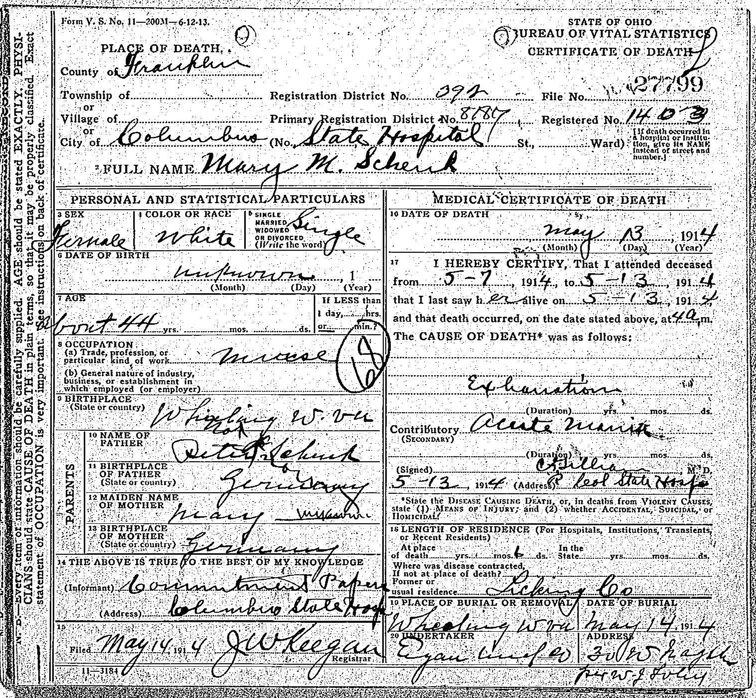 Form V. S. No. 11—20031—6-12-13.
STATE OF OHIO
BUREAU OF VITAL STATISTICS
CERTIFICATE OF DEATH
PLACE OF DEATH,
County of Franklin
27799
Township of Registration District No. 392 File No.
or
Village of Primary Registration District No. 8187 Registered No. 1403
or
City of Columbus (No. State Hospital St., Ward)
[If death occurred in a hospital or institution, give its NAME instead of street and number.]
2 FULL NAME Mary M. Schenk
PERSONAL AND STATISTICAL PARTICULARS
3 SEX Female
4 COLOR OR RACE White
5 SINGLE MARRIED WIDOWED OR DIVORCED (Write the word) Single
6 DATE OF BIRTH
unknown, 1
(Month) (Day) (Year)
7 AGE
about 44 yrs. mos. ds.
If LESS than 1 day, hrs. or min.?
8 OCCUPATION
(a) Trade, profession, or particular kind of work
(b) General nature of industry, business, or establishment in which employed (or employer)
68
9 BIRTHPLACE
(State or country) Wheeling W. Va
PARENTS
10 NAME OF FATHER Peter Schenk
11 BIRTHPLACE OF FATHER (State or country) Germany
12 MAIDEN NAME OF MOTHER Mary unknown
13 BIRTHPLACE OF MOTHER (State or country) Germany
14 THE ABOVE IS TRUE TO THE BEST OF MY KNOWLEDGE
(Informant) Commitment Papers
(Address) Columbus State Hosp
15
Filed May 14, 1914 J W Keegan
Registrar
11—3184
MEDICAL CERTIFICATE OF DEATH
16 DATE OF DEATH
May 13, 1914
(Month) (Day) (Year)
17 I HEREBY CERTIFY, That I attended deceased
from 5-7 1914, to 5-13, 1914
that I last saw her alive on 5-13, 1914
and that death occurred, on the date stated above, at 4 a m.
The CAUSE OF DEATH* was as follows:
Exhaustion
(Duration) yrs. mos. ds.
Contributory Acute Mania
(SECONDARY)
(Duration) yrs. mos. ds.
(Signed) M.D.
5-13, 1914 (Address) Col State Hosp
*State the DISEASE CAUSING DEATH, or, in deaths from VIOLENT CAUSES, state (1) MEANS OF INJURY; and (2) whether ACCIDENTAL, SUICIDAL, or HOMICIDAL.
18 LENGTH OF RESIDENCE (For Hospitals, Institutions, Transients, or Recent Residents)
At place of death yrs. mos. 6 ds. In the State yrs. mos. ds.
Where was disease contracted, If not at place of death?
Former or usual residence Licking Co
19 PLACE OF BURIAL OR REMOVAL
Wheeling W Va
DATE OF BURIAL
May 14, 1914
20 UNDERTAKER
Egan
ADDRESS
30 W
per W J Foley
N. B.—Every item of information should be carefully supplied. AGE should be stated EXACTLY. PHYSICIANS should state CAUSE OF DEATH in plain terms, so that it may be properly classified. Exact statement of OCCUPATION is very important. See instructions on back of certificate.